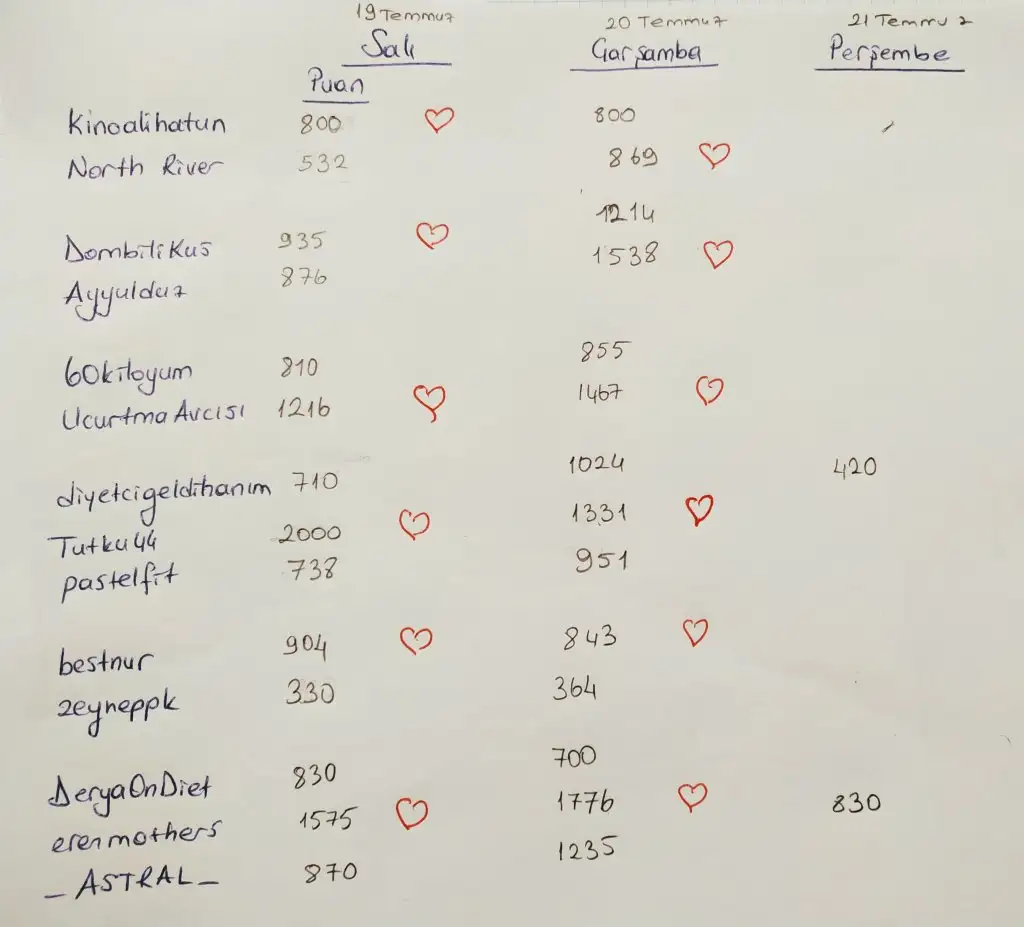 19 Temmuz 20 Temmuz 21 Temmuz
Salı Çarşamba Perşembe
Puan
Kinoalihatun 800 800
North River 532 869
1214
Dombili Kuş 935 1538
Ayyulduz 876
60kiloyum 810 855
Ucurtma Avcısı 1216 1467
diyetcigeldihanım 710 1024 420
Tutku44 2000 1331
pastelfit 738 951
bestnur 904 843
zeyneppk 330 364
DeryaOnDiet 830 700
erenmothers 1575 1776 830
_ASTRAL_ 870 1235